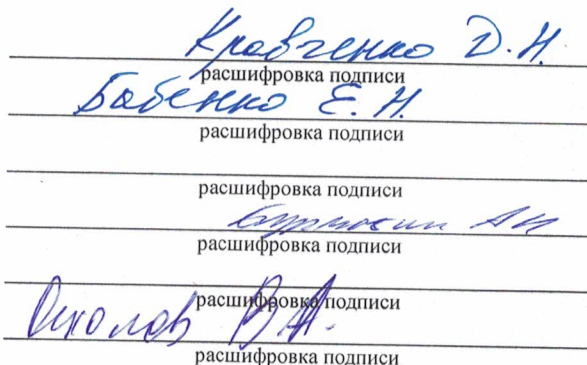 Кравченко Д.Н.
расшифровка подписи
Бабенко Е.Н.
расшифровка подписи
расшифровка подписи
Бурмакин АН
расшифровка подписи
расшифровка подписи
В.А.
расшифровка подписи